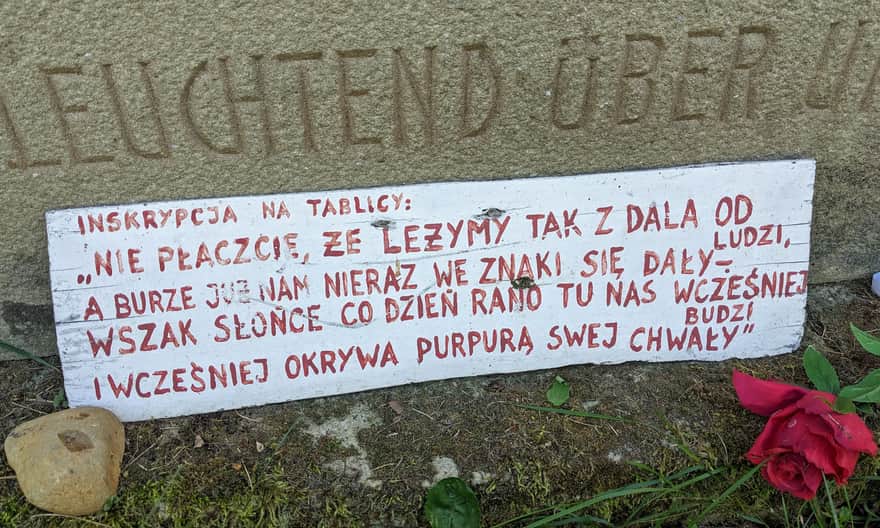 LEUCHTEND ÜBER
INSKRYPCJA NA TABLICY:
„NIE PŁACZCIE, ŻE LEŻYMY TAK Z DALA OD
LUDZI,
A BURZE JUŻ NAM NIERAZ WE ZNAKI SIĘ DAŁY –
WSZAK SŁOŃCE CO DZIEŃ RANO TU NAS WCZEŚNIEJ
BUDZI
I WCZEŚNIEJ OKRYWA PURPURĄ SWEJ CHWAŁY”